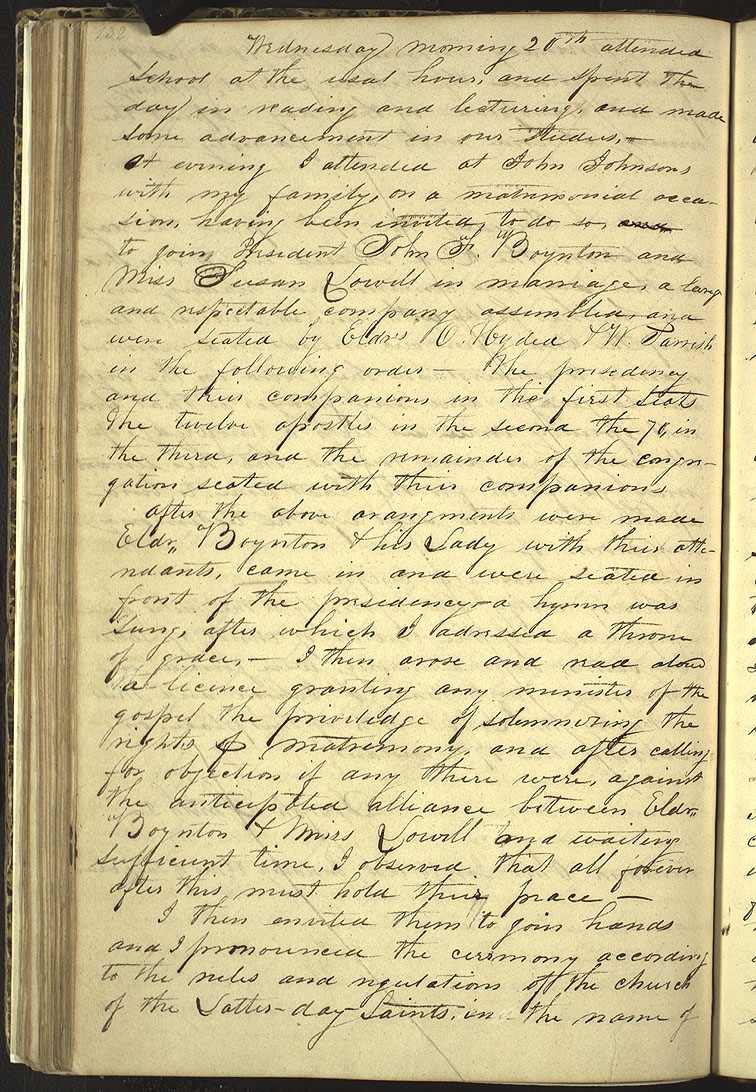 132
Wednesday morning 20th attended
school at the usal hour, and spent the
day in reading and lecturing, and made
some advancement in our studies,—
At evening I attended at John Johnsons
with my family, on a matrimonial occa-
sion, having been invited, to do so, and
to join President John F. Boynton and
Miss Susan Lowell in marriage, a large
and respectable company assembled, and
were seated by Eldr's O. Hyde & W. Parrish
in the following order— The presidency
and their companions in the first seats
the twelve apostles in the second the 70, in
the third, and the remainder of the congre-
gation seated with their companions
after the above arangments were made
Eldr,, Boynton & his Lady with their atte-
ndants, came in and were seated in
front of the presidency—a hymn was
sung, after which I adressed a throne
of grace,— I then arose and read aloud
a licence granting any minister of the
gospel the priviledge of solemnizing the
rights of matrimony, and after calling
for objection if any there were, against
the anticipated alliance between Eldr,,
Boynton & Miss Lowell and waiting
sufficient time, I observed that all forever
after this must hold their peace —
I then envited them to join hands
and I pronounced the ceremony according
to the rules and regulations off the church
of the Latter-day-Saints, in the name of